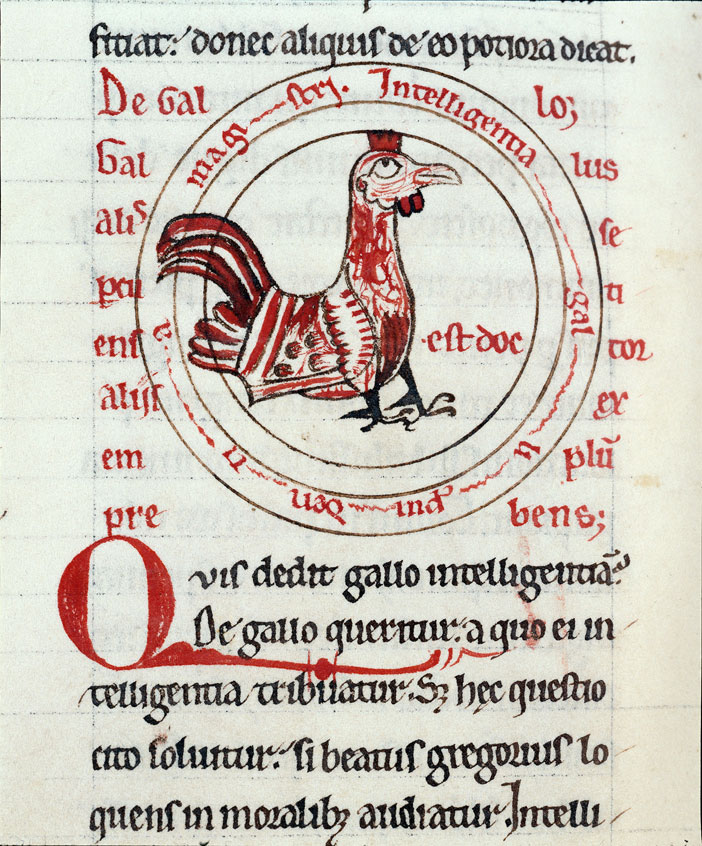 fitiat: donec aliquis de eo potiora dicat.
De Gal loꝫ
Gal lus
aliꝰ se
ꝑcu ti
ens · est doc tor
alijs ex
em plū
pre bens;
Intelligentia gal li ꝓui den ti a magi strj.
Quis dedit gallo intelligentiā?
De gallo queritur: a quo ei in
telligentia tribuatur. Sꝫ hęc questio
cito soluitur: si beatus gregorius lo
quens in moralibꝫ audiatur. Intelli